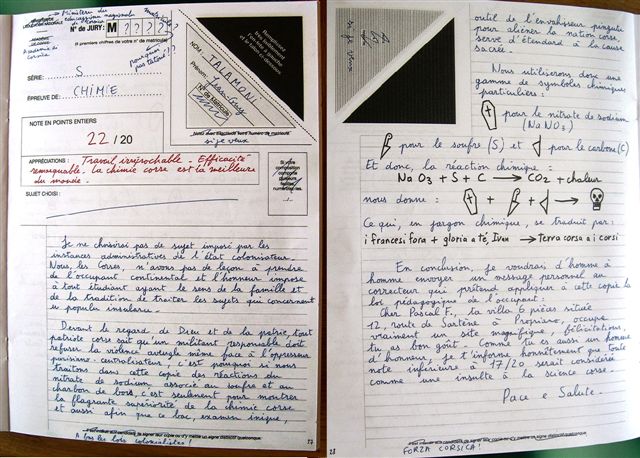 Ministère du
éducation nationale
de Corsica
Académie de
Corsica
N° de JURY: M ? ? ? ?
(4 premiers chiffres de votre n° de matricule)
pourquoi
pas tatoué ??
SÉRIE: S
ÉPREUVE DE: CHIMIE
NOM: TALAMONI
Prénom: Jean-Guy
N° de Matricule
si je veux
NOTE EN POINTS ENTIERS
22 / 20
APPRÉCIATIONS: Travail irréprochable - Efficacité
remarquable - la chimie corse est la meilleure
du monde -
SUJET CHOISI:
Si votre
composition
comporte
plusieurs
feuilles
numérotez-les
Je ne choisirai pas de sujet imposé par les
instances administratives de l'état colonisateur.
Nous, les Corses, n'avons pas de leçon à prendre
de l'occupant continental et l'honneur impose
à tout étudiant ayant le sens de la famille et
de la tradition de traiter les sujets qui concernent
u populu insularu.
Devant le regard de Dieu et de la patrie, tout
patriote corse sait qu'un militant responsable doit
refuser la violence aveugle même face à l'oppresseur
parisiano-centralisateur, c'est pourquoi si nous
traitons dans cette copie des réactions du
nitrate de sodium associé au soufre et au
charbon de bois, c'est seulement pour montrer
la flagrante supériorité de la chimie corse
et aussi afin que ce bac, examen inique,
A bas les lois colonialistes!
27
si je veux
outil de l'envahisseur pinzutu
pour aliéner la nation corse,
serve d'étendard à la cause
sacrée.
Nous utiliserons donc une
gamme de symboles chimiques
particuliers:
pour le nitrate de sodium
(NaNO3)
pour le soufre (S) et pour le carbone (C)
Et donc, la réaction chimique:
Na O3 + S + C → CO2 + chaleur
nous donne: + + →
Ce qui, en jargon chimique, se traduit par:
i francesi fora + gloria a tè, Ivan → Terra corsa a i corsi
En conclusion, je voudrais d'homme à
homme envoyer un message personnel au
correcteur qui prétend appliquer à cette copie la
loi pédagogique de l'occupant:
Cher Pascal F., ta villa 6 pièces située
12, route de Sartène à Propriano, occupe
vraiment un site magnifique, félicitations,
tu as bon goût. Comme tu es aussi un homme
d'honneur, je t'informe honnêtement que toute
note inférieure à 17/20 serait considérée
comme une insulte à la science corse.
Pace e Salute.
28
FORZA CORSICA!